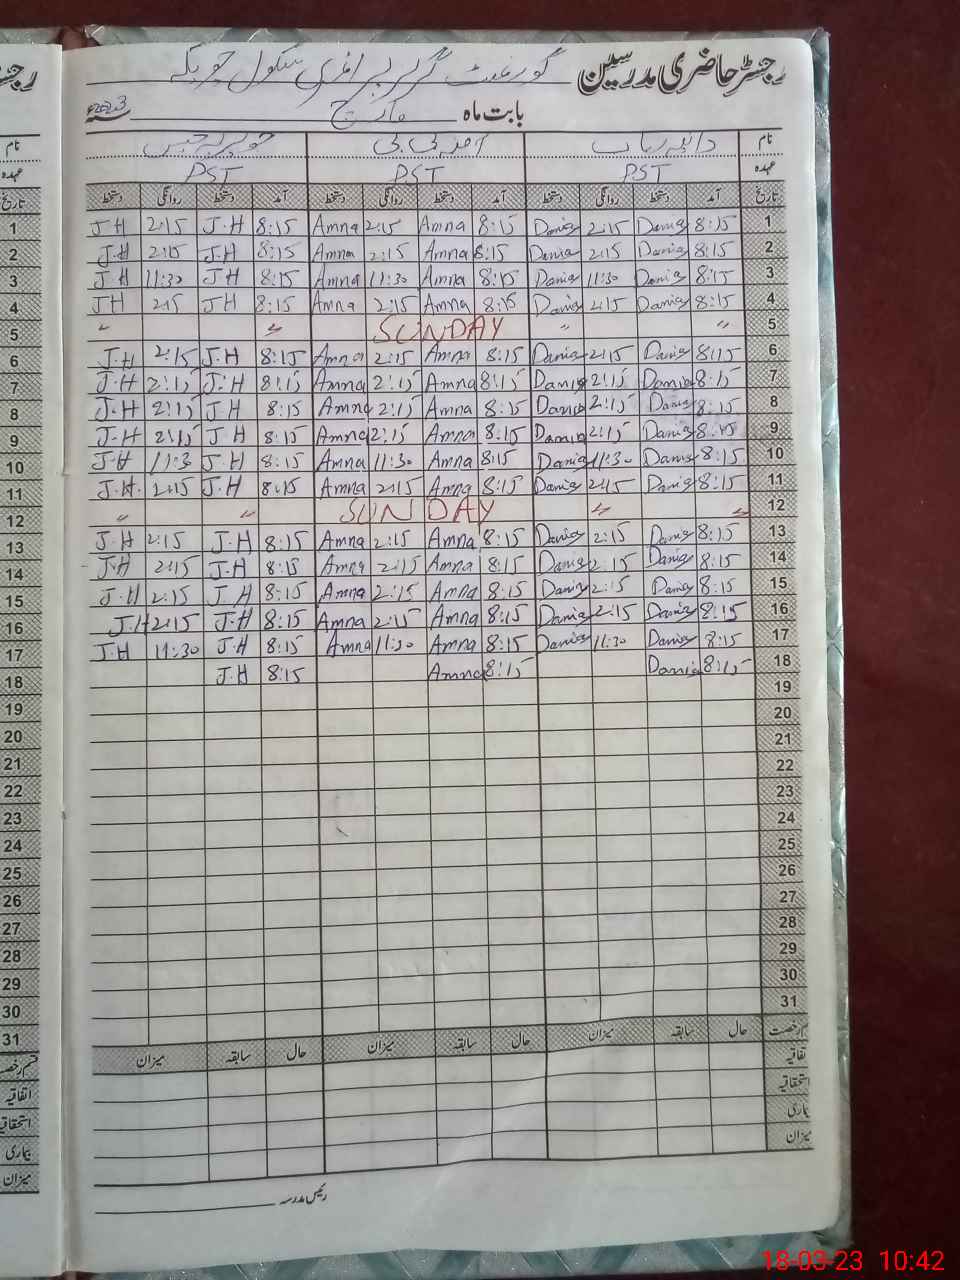 رجسٹر حاضری مدرسین گورنمنٹ گرلز پرائمری سکول
بابت ماہ مارچ 2023ء
نام دانیہ آمنہ بی بی
عہدہ PST PST PST
تاریخ آمد دستخط روانگی دستخط آمد دستخط روانگی دستخط آمد دستخط روانگی دستخط
J-H 2:15 J-H 8:15 Amna 2:15 Amna 8:15 Dania 2:15 Dania 8:15 1
J-H 2:15 J-H 8:15 Amna 2:15 Amna 8:15 Dania 2:15 Dania 8:15 2
J-H 11:30 J-H 8:15 Amna 11:30 Amna 8:15 Dania 11:30 Dania 8:15 3
JH 2:15 JH 8:15 Amna 2:15 Amna 8:15 Dania 2:15 Dania 8:15 4
" " SUNDAY " " 5
J-H 2:15 J-H 8:15 Amna 2:15 Amna 8:15 Dania 2:15 Dania 8:15 6
J-H 2:15 J-H 8:15 Amna 2:15 Amna 8:15 Dania 2:15 Dania 8:15 7
J-H 2:15 J-H 8:15 Amna 2:15 Amna 8:15 Dania 2:15 Dania 8:15 8
J-H 2:15 J-H 8:15 Amna 2:15 Amna 8:15 Dania 2:15 Dania 8:15 9
J-H 11:3 J-H 8:15 Amna 11:30 Amna 8:15 Dania 11:30 Dania 8:15 10
J-H. 2:15 J-H 8:15 Amna 2:15 Amna 8:15 Dania 2:15 Dania 8:15 11
" " SUNDAY " " 12
J-H 2:15 J-H 8:15 Amna 2:15 Amna 8:15 Dania 2:15 Dania 8:15 13
J-H 2:15 J-H 8:15 Amna 2:15 Amna 8:15 Dania 2:15 Dania 8:15 14
J-H 2:15 J-H 8:15 Amna 2:15 Amna 8:15 Dania 2:15 Dania 8:15 15
J-H 2:15 J-H 8:15 Amna 2:15 Amna 8:15 Dania 2:15 Dania 8:15 16
J-H 11:30 J-H 8:15 Amna 11:30 Amna 8:15 Dania 11:30 Dania 8:15 17
J-H 8:15 Amna 8:15 Dania 8:15 18
19
20
21
22
23
24
25
26
27
28
29
30
31
رخصت حال سابقہ میزان حال سابقہ میزان حال سابقہ میزان
اتفاقیہ
استحقاقیہ
بیماری
میزان
رئیس مدرسہ
18-03-23 10:42